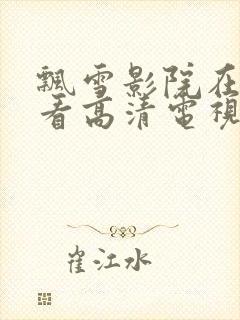 飄雪影院在
看高清電視
崔江水